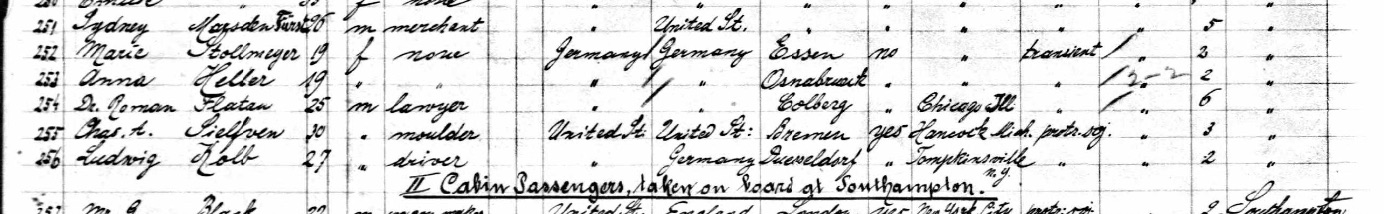 251 Sydney Marsden Fürst 26 m merchant " United St. " " " " " 5 "
252 Marie Stollmeyer 19 f none Germany Germany Essen no " transient " 2 "
253 Anna Heller 19 " " " Osnabrueck " " " 2-2 " 2 "
254 Dr. Roman Flatau 25 m lawyer " " Colberg " Chicago Ill " " 6 "
255 Chas. A. Sielfven 30 " moulder United St. United St: Bremen yes Hancock Mich. protr. soj. " 3 "
256 Ludwig Kolb 27 " driver " Germany Duesseldorf " Tompkinsville N.Y. " " 2 "
II Cabin Passengers, taken on board at Southampton.
257 Black m United St. England London yes New York City protr. soj. Southampton